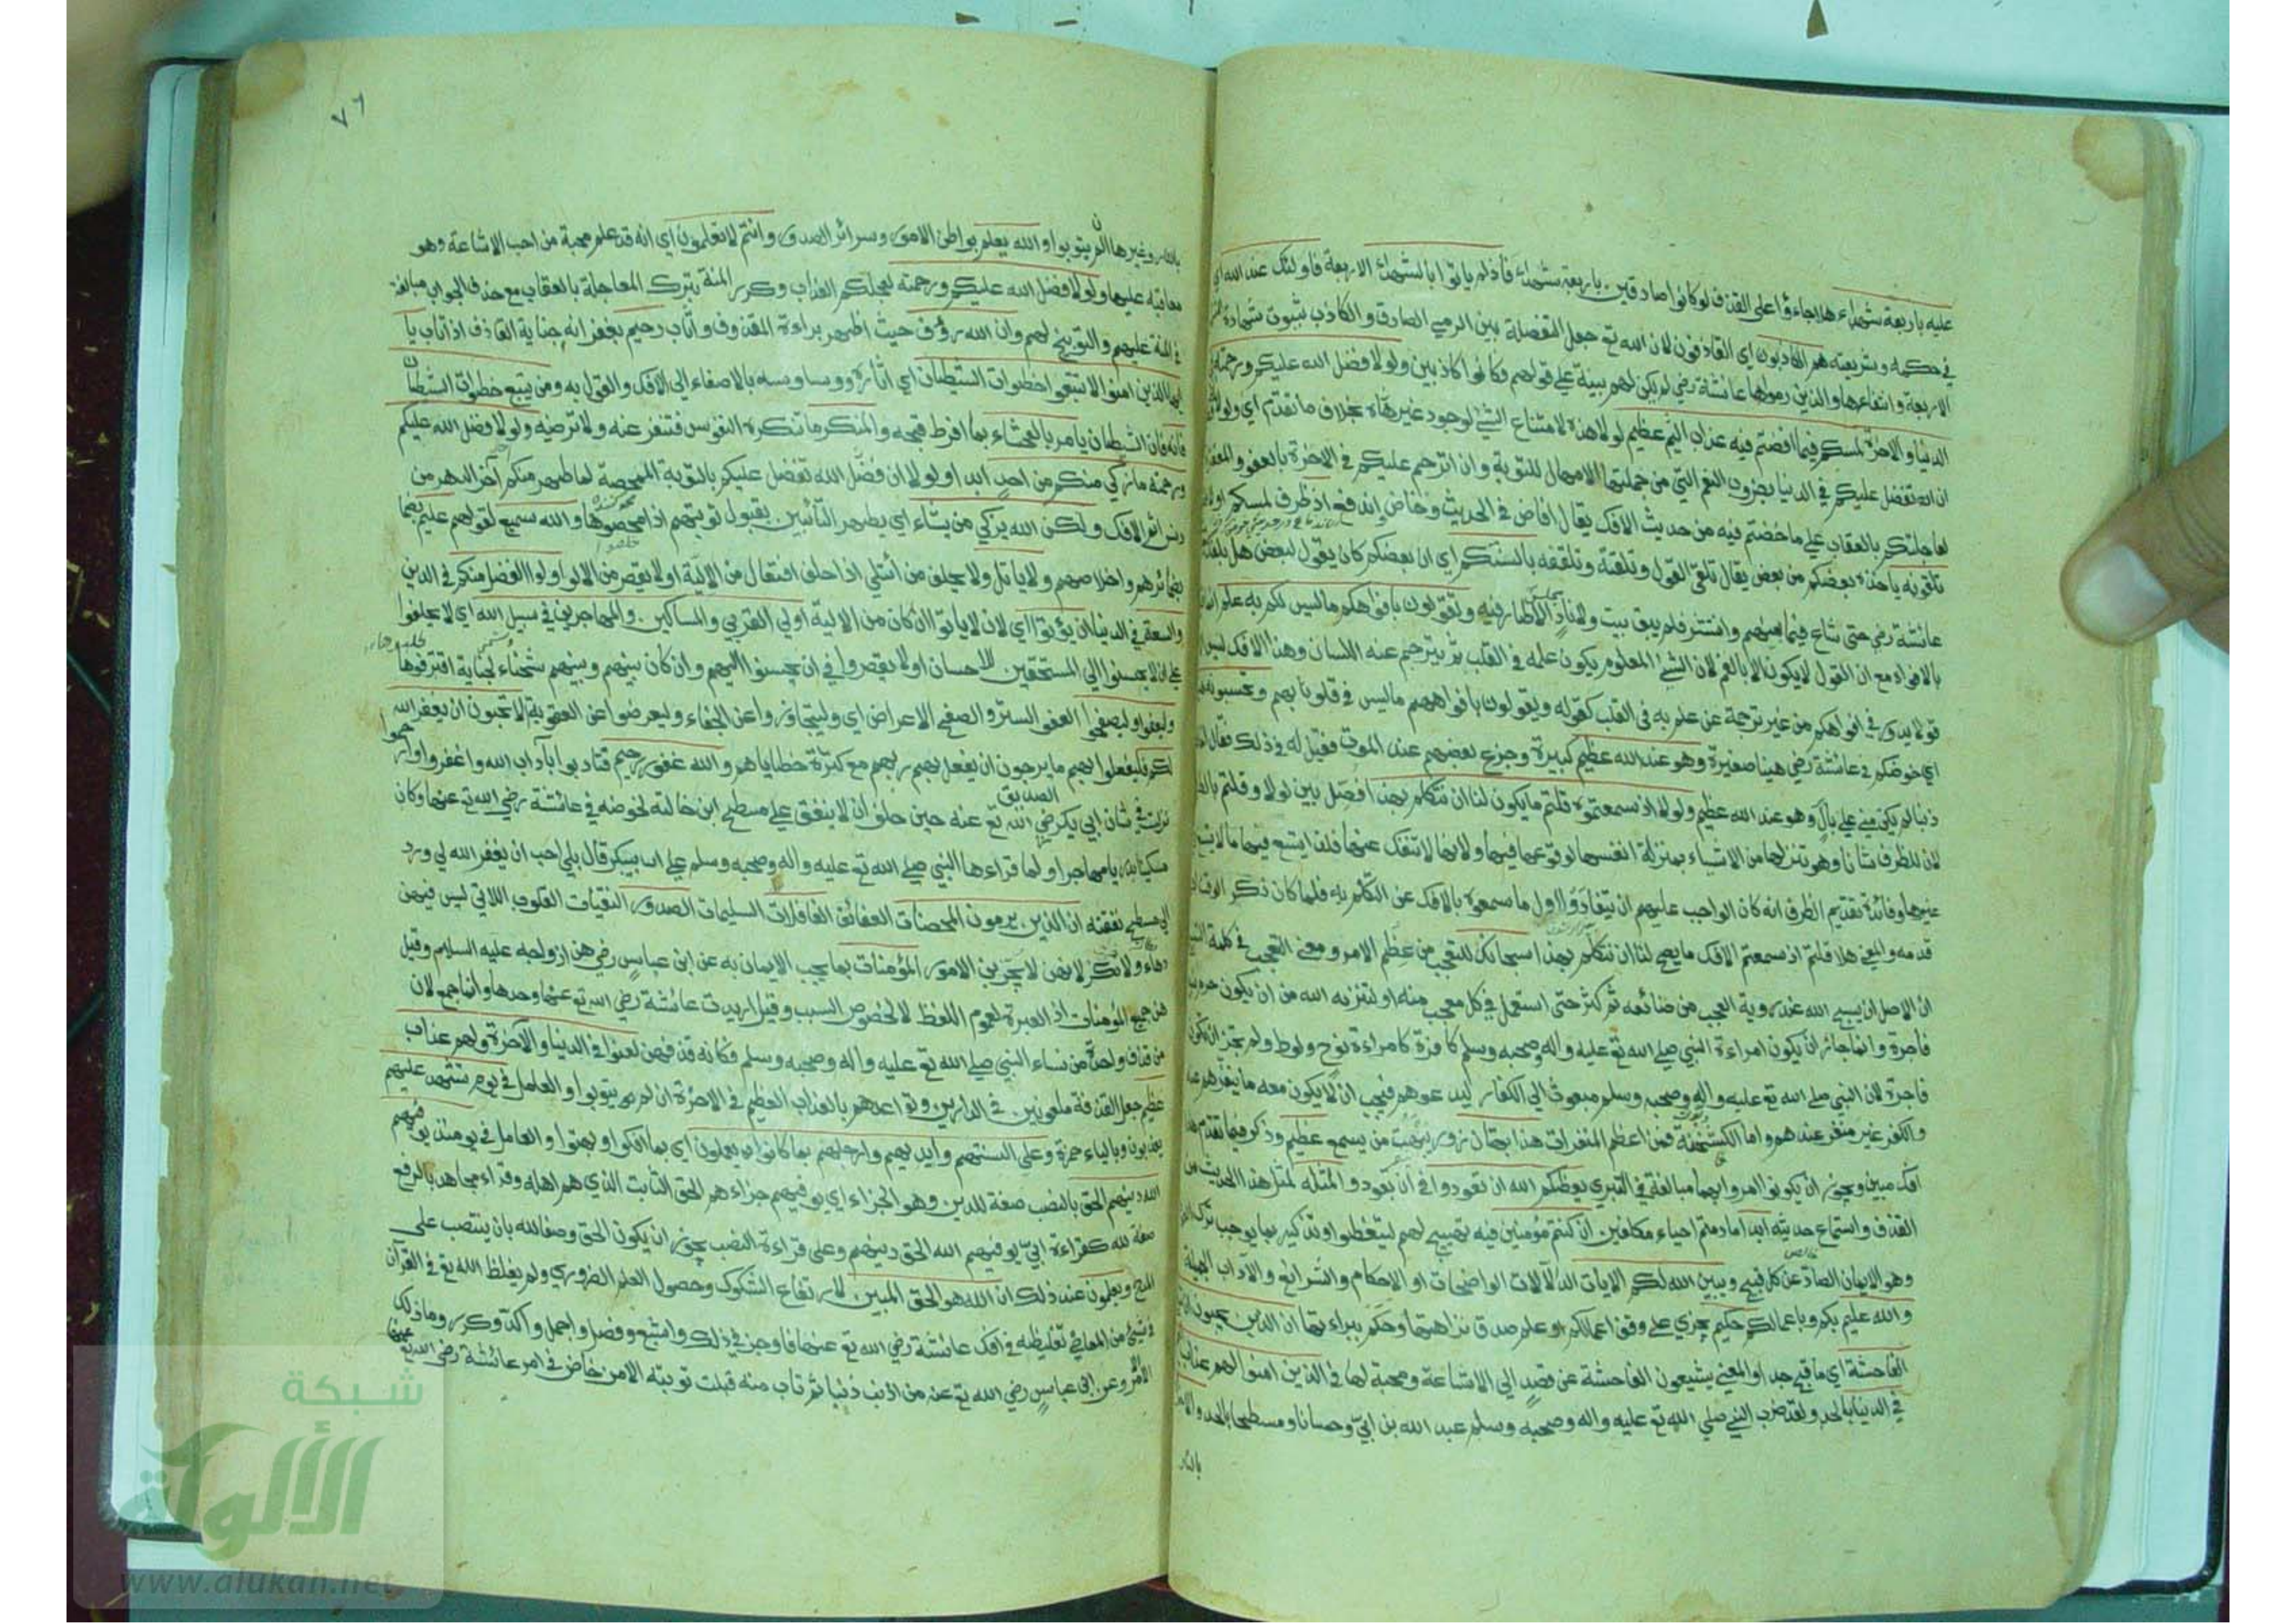 عليه باربعة شهداء هلا جاءوا على القذف لو كانوا صادقين باربعة شهداء فاذ لم ياتوا بالشهداء الاربعة فاولئك عند الله اي
في حكمه وشريعته هم الكاذبون اي القاذفون لان الله تع جعل التفصلة بين الرمي الصادق والكاذب بثبوت شهادة
الاربعة وانتفاءها والذين رموها عائشة رضي لم يكن لهم بينة على قولهم فكانوا كاذبين ولولا فضل الله عليكم ورحمته في
الدنيا والاخرة لمسكم فيما افضتم فيه عذاب اليم عظيم لولا هذه لامتناع الشئ لوجود غيره بخلاف ما تقدم اي ولولا
ان الله تفضل عليكم في الدنيا بضروب النعم التي من جملتها الامهال للتوبة وان اترحم عليكم في الاخرة بالعفو والمغفرة
لعاجلتكم بالعقاب على ما خضتم فيه من حديث الافك يقال افاض في الحديث وخاض اندفع اذ ظرف لمسكم او
تلقونه ياخذه بعضكم من بعض يقال تلقى القول وتلقنه وتلقفه بالسنتكم اي ان بعضكم كان يقول لبعض هل بلغك
عائشة رضي حتى شاع فيما بينهم وانتشر فلم يبق بيت ولا ناد الا طار فيه وتقولون بافواهكم ما ليس لكم به علم
بالافواه مع ان القول لا يكون الا بالفم لان الشئ المعلوم يكون علمه في القلب ثم يترجم عنه اللسان وهذا الافك ليس
قولا يدور في افواهكم من غير ترجمة عن علم به في القلب كقوله ويقولون بافواههم ما ليس في قلوبهم وتحسبونه
اي خوضكم في عائشة رضي هينا صغيرة وهو عند الله عظيم كبيرة وجزع بعضهم عند الموت فقيل له في ذلك فقال
ذنبا لم يكن مني على بال وهو عند الله عظيم ولولا اذ سمعتموه قلتم ما يكون لنا ان نتكلم بهذا فصل بين لولا وقلتم
لان للظرف شانا وهو تنزلها من الاشياء بمنزلة انفسها لوقوعها فيها ولانها لا تنفك عنها فلذا يتسع فيها ما لا يتسع
غيرها وفائدة تقديم الظرف انه كان الواجب عليهم ان يتفادوا اول ما سمعوه بالافك عن التكلم به فلما كان ذكر الوقت
قدمه والمعنى هلا قلتم اذ سمعتم الافك ما يصح لنا ان نتكلم بهذا سبحانك للتعجب من عظم الامر ومعنى التعجب في كلمة
ان الاصل ان يسبح الله عند رؤية العجب من صنائعه ثم كثر حتى استعمل في كل معجب منه او لتنزيه الله من ان يكون
فاجرة وانما جاز ان يكون امراءة النبي صلى الله تع عليه واله وصحبه وسلم كافرة كامراءة نوح ولوط ولم يجز ان
فاجرة لان النبي صلى الله تع عليه واله وصحبه وسلم مبعوث الى الكفار ليدعوهم فيجب ان لا يكون معه ما ينفرهم
والكفر غير منفر عندهم واما الكشخنة فمن اعظم المنفرات هذا بهتان زور يبهت من يسمع عظيم وذكر فيما تقدم
افك مبين ويجوز ان يكونوا امروا بهما مبالغة في التبري يعظكم الله ان تعودوا في ان تعودوا لمثله لمثل هذا الحديث من
القذف واستماع حديثه ابدا ما دمتم احياء مكلفين ان كنتم مؤمنين فيه تهييج لهم ليتعظوا وتذكير بما يوجب ترك
وهو الايمان الصاد عن كل قبيح ويبين الله لكم الايات الدلالات الواضحات او الاحكام والشرايع والآداب الجميلة
والله عليم بكم وباعمالكم حكيم يجزي على وفق اعمالكم او علم صدق نزاهتها وحكم ببراءتها ان الذين يحبون ان
الفاحشة اي ما قبح جدا والمعنى يشيعون الفاحشة عن قصد الى الاشاعة ومحبة لها في الذين امنوا لهم عذاب
في الدنيا بالحد ولقد ضرب النبي صلى الله تع عليه واله وصحبه وسلم عبد الله بن ابي وحسانا ومسطحا بالحد
بالنار
٧٦
بالنار وغيرها ان لم يتوبوا والله يعلم بواطن الامور وسرائر الصدور وانتم لا تعلمون اي انه قد علم محبة من احب الاشاعة وهو
معاقبه عليها ولولا فضل الله عليكم ورحمته لعجلكم العذاب وكرر المنة بترك المعاجلة بالعقاب مع حذف الجواب مبالغة
في المنة عليهم والتوبيخ لهم وان الله رؤف حيث اظهر براءة المقذوف واثاب رحيم بغفرانه جناية القاذف اذا تاب يا
ايها الذين امنوا لا تتبعوا خطوات الشيطان اي آثاره ووساوسه بالاصغاء الى الافك والقول به ومن يتبع خطوات الشيطان
فانه فان الشيطان يامر بالفحشاء بما افرط قبحه والمنكر ما تنكره النفوس فتنفر عنه ولا ترضيه ولولا فضل الله عليكم
ورحمته ما زكي منكم من احد ابدا ولولا ان فضل الله تفضل عليكم بالتوبة الممحصة لما طهر منكم آخر الدهر من
دنس اثم الافك ولكن الله يزكي من يشاء اي يطهر التائبين بقبول توبتهم اذا محضوها والله سميع لقولهم عليم بما
بضمائرهم واخلاصهم ولا ياتل ولا يحلف من ائتلى اذا حلف افتعال من الالية او لا يقصر من الالو اولوا الفضل منكم في الدين
والسعة في الدنيا ان يؤتوا اي لان لا ياتوا ان كان من الالية اولي القربي والمساكين والمهاجرين في سبيل الله اي لا يحلفوا
على ان لا يحسنوا الى المستحقين للاحسان او لا يقصروا في ان يحسنوا اليهم وان كان بينهم وبينهم شحناء لجناية اقترفوها
وليعفوا وليصفحوا العفو الستر والصفح الاعراض اي وليتجاوزوا عن الجفاء وليعرضوا عن العقوبة الا تحبون ان يغفر الله
لكم فليفعلوا بهم ما يرجون ان يفعل بهم ربهم مع كثرة خطاياهم والله غفور رحيم فتادبوا بآداب الله واغفروا وارحموا
نزلت في شان ابي بكر الصديق رضي الله تع عنه حين حلف ان لا ينفق على مسطح ابن خالته لخوضه في عائشة رضي الله تع عنها وكان
مسكينا بدريا مهاجرا ولما قراءها النبي صلى الله تع عليه واله وصحبه وسلم على ابي بكر قال بلى احب ان يغفر الله لي ورد
الى مسطح نفقته ان الذين يرمون المحصنات العفائف الغافلات السليمات الصدور النقيات القلوب اللاتي ليس فيهن
دهاء ولا مكر لانهن لا يجربن الامور المؤمنات بما يجب الايمان به عن ابن عباس رضي هن ازواجه عليه السلام وقيل
هن جميع المؤمنات اذ العبرة لعموم اللفظ لا لخصوص السبب وقيل اريدت عائشة رضي الله تع عنها وحدها وانما جمع لان
من قذف واحدة من نساء النبي صلى الله تع عليه واله وصحبه وسلم فكانه قذفهن لعنوا في الدنيا والآخرة ولهم عذاب
عظيم جعل القذفة ملعونين في الدارين وتواعدهم بالعذاب العظيم في الاخرة ان لم يتوبوا والعامل في يوم تشهد عليهم
يعذبون وبالياء حمزة وعلى السنتهم وايديهم وارجلهم بما كانوا يعملون اي بما افكوا وبهتوا والعامل في يومئذ يوفيهم
الله دينهم الحق بالنصب صفة للدين وهو الجزاء اي يوفيهم جزاءهم الحق الثابت الذي هم اهله وقراء مجاهد بالرفع
صفة لله كقراءة ابي يوفيهم الله الحق دينهم وعلى قراءة النصب يجوز ان يكون الحق وصفا لله بان ينتصب على
المدح ويعلمون عند ذلك ان الله هو الحق المبين لارتفاع الشكوك وحصول العلم الضروري ولم يغلظ الله تع في القرآن
في شئ من المعاصي تغليظه في افك عائشة رضي الله تع عنها فاوجز في ذلك واشبع وفصل واجمل واكد وكرر وما ذلك
الا لامر وعن ابن عباس رضي الله تع عنه من اذنب ذنبا ثم تاب منه قبلت توبته الا من خاض في امر عائشة رضي الله تع عنها
شبكة
الألوكة
www.alukah.net